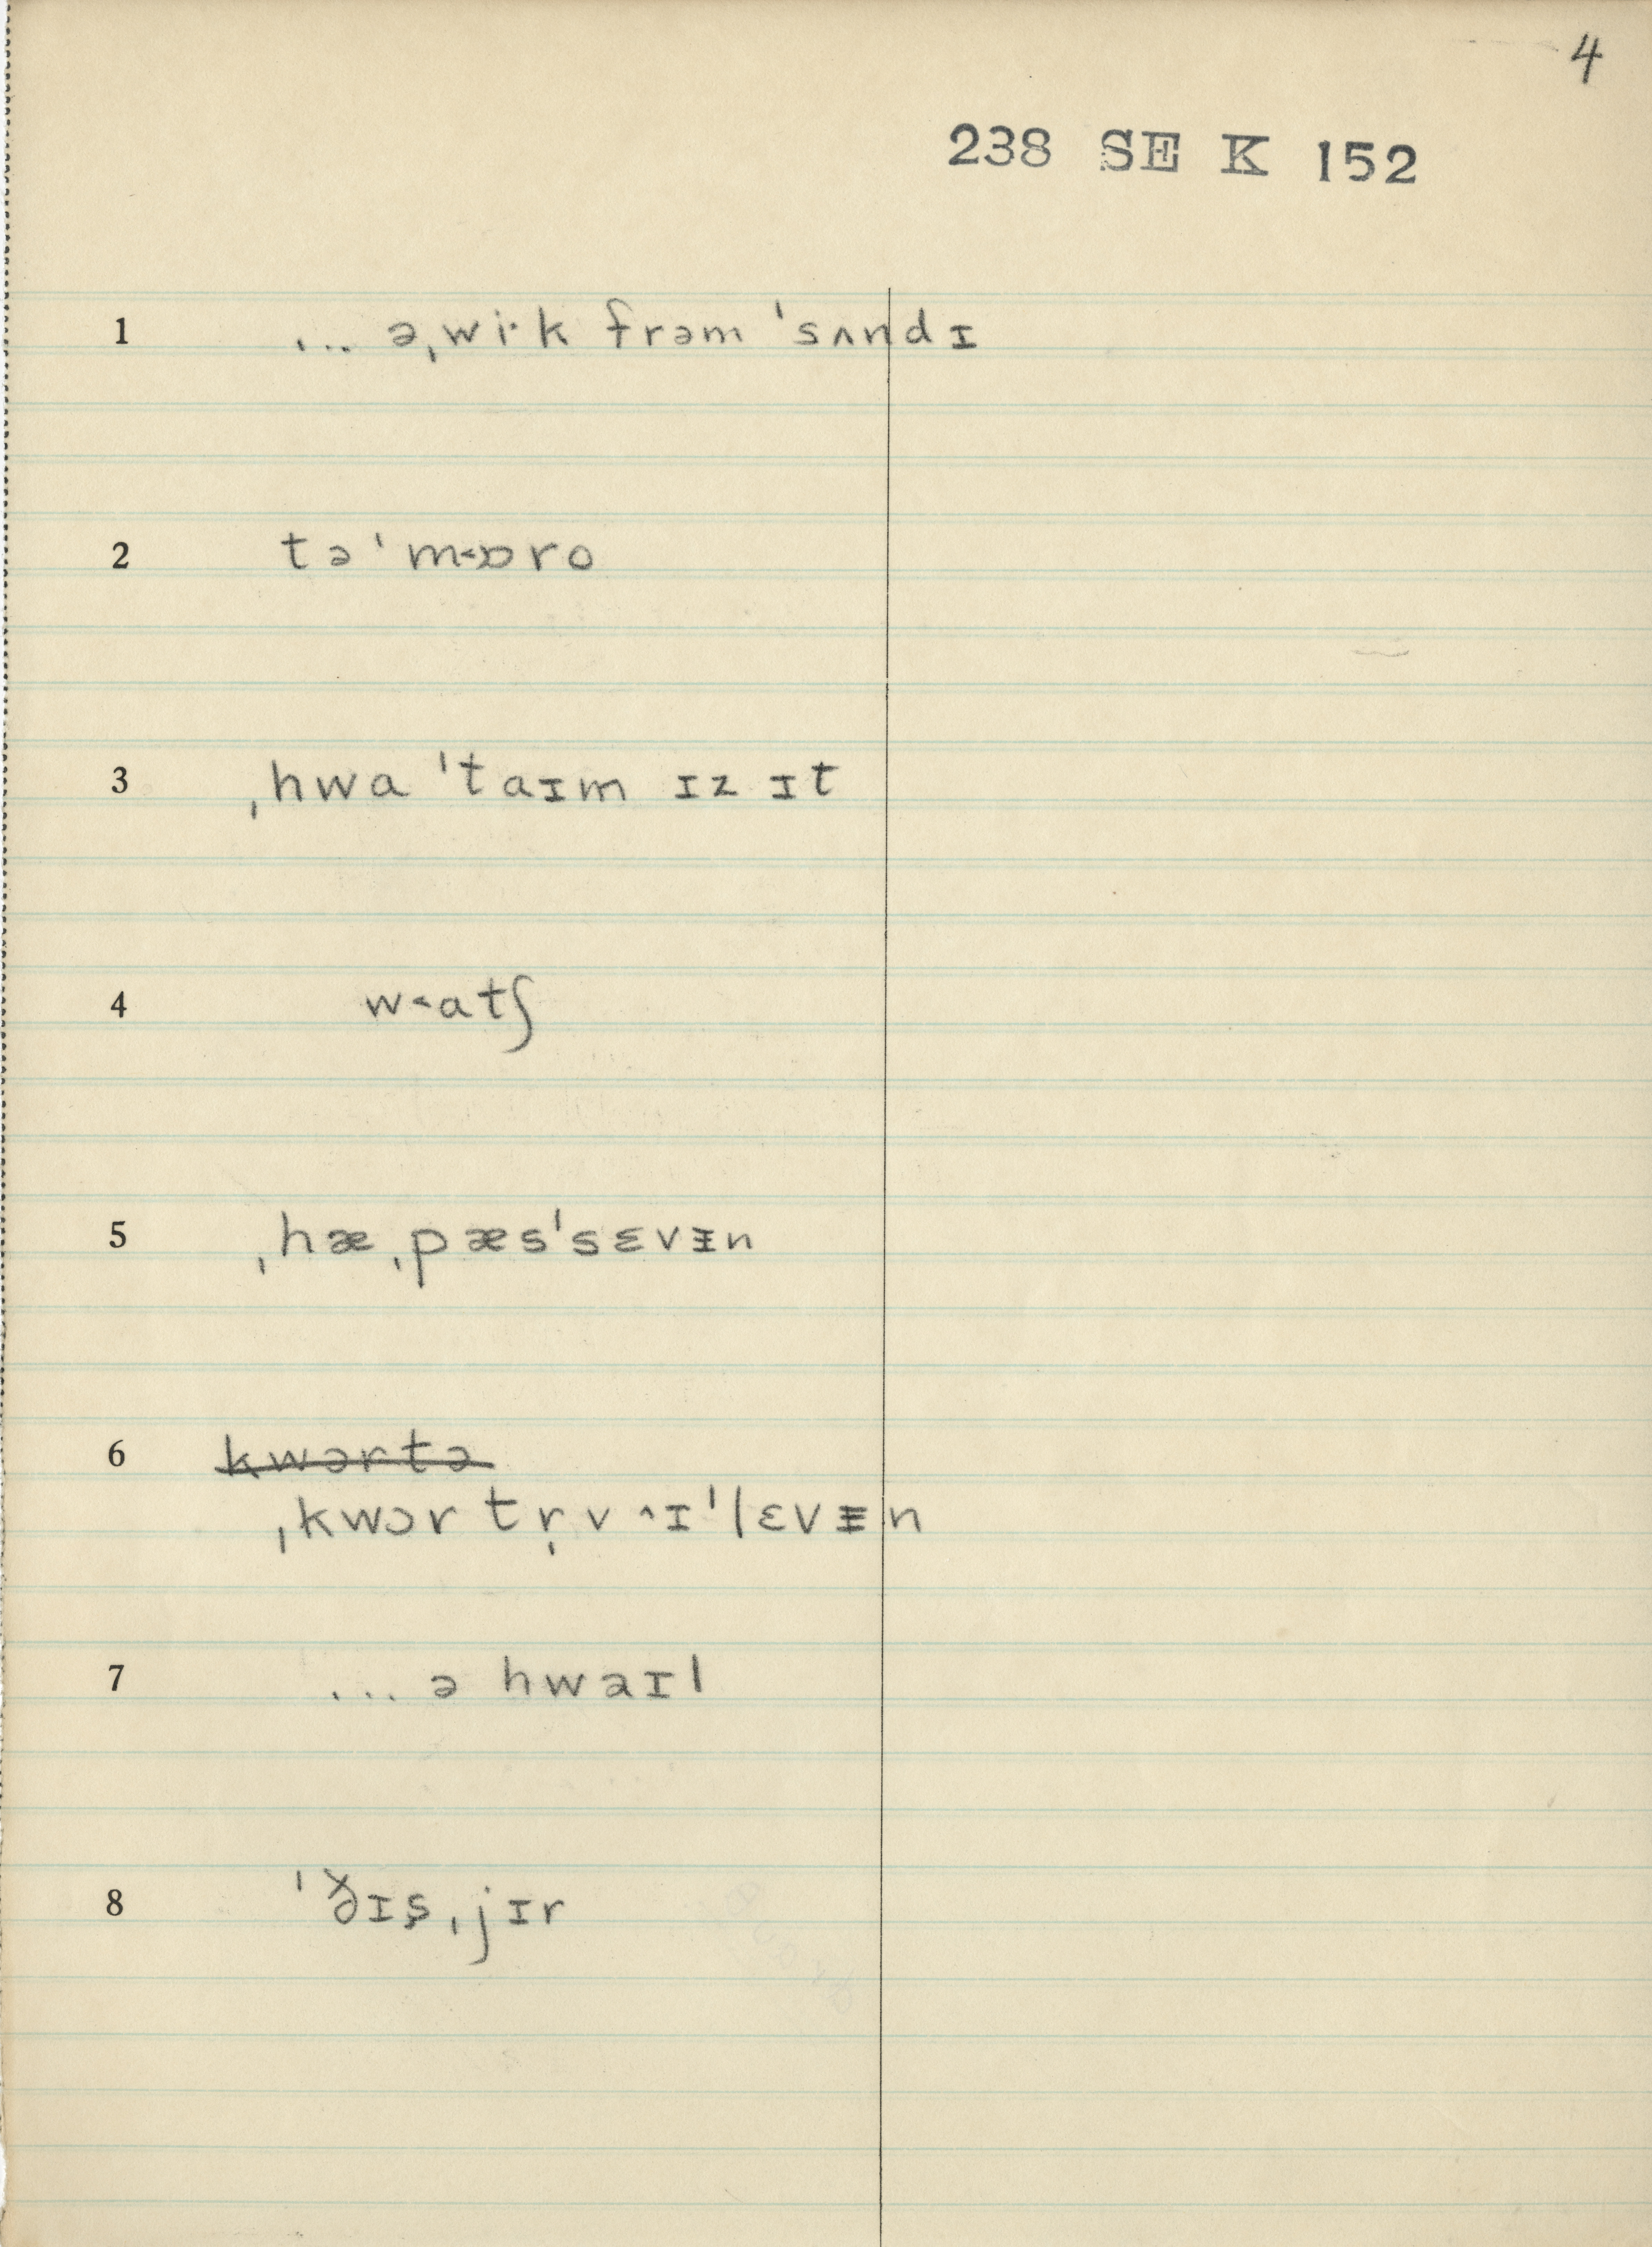 4
238 SE K 152
1 ... əˌwi·k frəm ˈsʌndɪ
2 təˈm˂ɒro
3 ˌhwa ˈtaɪm ɪz ɪt
4 w˂atʃ
5 ˌhæˌpæsˈsɛvᵻn
6 kwɔrtə
ˌkwɔrtr̩v ˄ɪˈlɛvᵻn
7 ... ə hwaɪl
8 ˈðɪs̬ˌjɪr